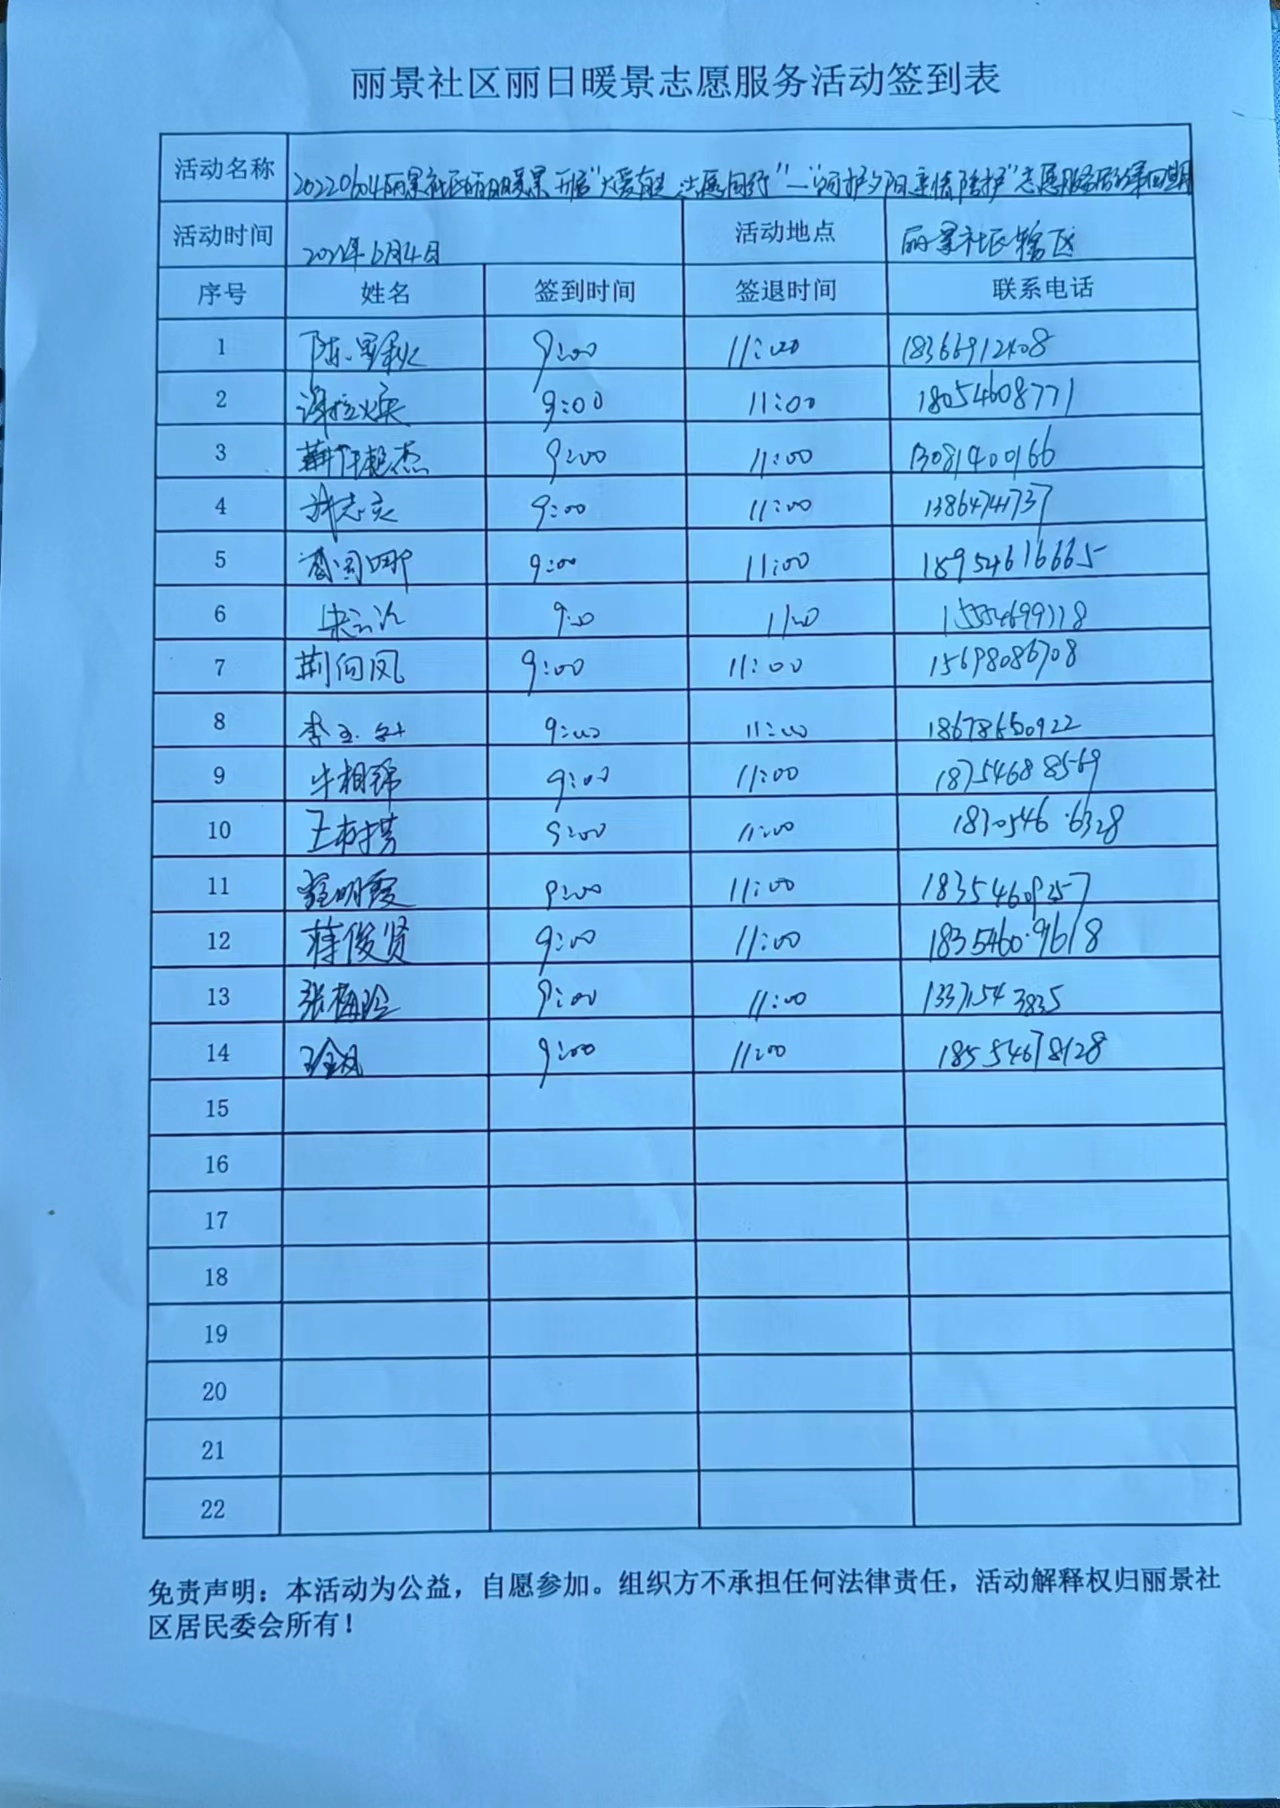 丽景社区丽日暖景志愿服务活动签到表
活动名称 20220604丽景社区丽日暖景开启"大爱有 志愿同行"—"呵护夕阳 真情陪护"志愿服务活动第四期
活动时间 2022年6月4日 活动地点 丽景社区辖区
序号 姓名 签到时间 签退时间 联系电话
1 9:00 11:00
2 9:00 11:00 18054608771
3 9:00 11:00 13081400166
4 9:00 11:00 13864741737
5 9:00 11:00 18954616665
6 9:00 11:00
7 荆向凤 9:00 11:00 15698086708
8 9:00 11:00 18678650922
9 牛相锦 9:00 11:00 18754688569
10 王树芳 9:00 11:00
11 明霞 9:00 11:00 18354609257
12 蒋俊贤 9:00 11:00 18354609618
13 张梅玲 9:00 11:00 13371543835
14 9:00 11:00 18554678128
15
16
17
18
19
20
21
22
免责声明：本活动为公益，自愿参加。组织方不承担任何法律责任，活动解释权归丽景社
区居民委会所有！